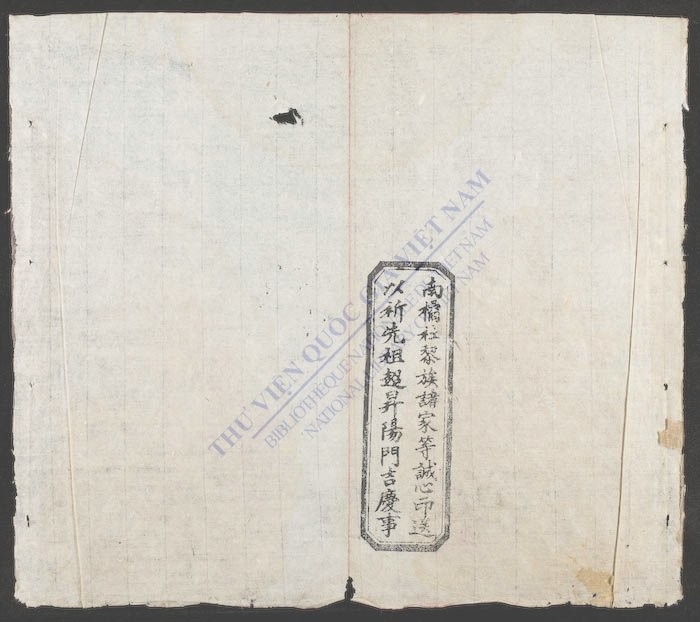 南橘社黎族諸家等誠心印送
以祈先祖超昇陽門吉慶事
THƯ VIỆN QUỐC GIA VIỆT NAM
BIBLIOTHÈQUE NATIONALE DU VIETNAM
NATIONAL LIBRARY OF VIETNAM